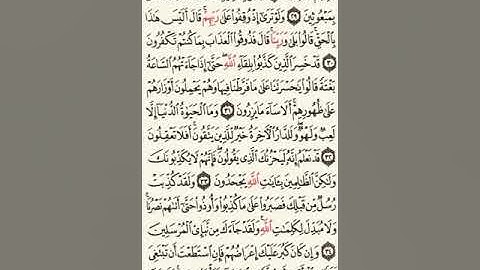 بِمَبْعُوثِينَ ٢٩ وَلَوْ تَرَىٰٓ إِذْ وُقِفُوا۟ عَلَىٰ رَبِّهِمْ ۚ قَالَ أَلَيْسَ هَٰذَا
بِٱلْحَقِّ ۚ قَالُوا۟ بَلَىٰ وَرَبِّنَا ۚ قَالَ فَذُوقُوا۟ ٱلْعَذَابَ بِمَا كُنتُمْ تَكْفُرُونَ
٣٠ قَدْ خَسِرَ ٱلَّذِينَ كَذَّبُوا۟ بِلِقَآءِ ٱللَّهِ ۖ حَتَّىٰٓ إِذَا جَآءَتْهُمُ ٱلسَّاعَةُ
بَغْتَةً قَالُوا۟ يَٰحَسْرَتَنَا عَلَىٰ مَا فَرَّطْنَا فِيهَا وَهُمْ يَحْمِلُونَ أَوْزَارَهُمْ
عَلَىٰ ظُهُورِهِمْ ۚ أَلَا سَآءَ مَا يَزِرُونَ ٣١ وَمَا ٱلْحَيَوٰةُ ٱلدُّنْيَآ إِلَّا
لَعِبٌ وَلَهْوٌ ۖ وَلَلدَّارُ ٱلْءَاخِرَةُ خَيْرٌ لِّلَّذِينَ يَتَّقُونَ ۗ أَفَلَا تَعْقِلُونَ
٣٢ قَدْ نَعْلَمُ إِنَّهُۥ لَيَحْزُنُكَ ٱلَّذِى يَقُولُونَ ۖ فَإِنَّهُمْ لَا يُكَذِّبُونَكَ
وَلَٰكِنَّ ٱلظَّٰلِمِينَ بِـَٔايَٰتِ ٱللَّهِ يَجْحَدُونَ ٣٣ وَلَقَدْ كُذِّبَتْ
رُسُلٌ مِّن قَبْلِكَ فَصَبَرُوا۟ عَلَىٰ مَا كُذِّبُوا۟ وَأُوذُوا۟ حَتَّىٰٓ أَتَىٰهُمْ نَصْرُنَا ۚ
وَلَا مُبَدِّلَ لِكَلِمَٰتِ ٱللَّهِ ۚ وَلَقَدْ جَآءَكَ مِن نَّبَإِى۟ ٱلْمُرْسَلِينَ
٣٤ وَإِن كَانَ كَبُرَ عَلَيْكَ إِعْرَاضُهُمْ فَإِنِ ٱسْتَطَعْتَ أَن تَبْتَغِىَ